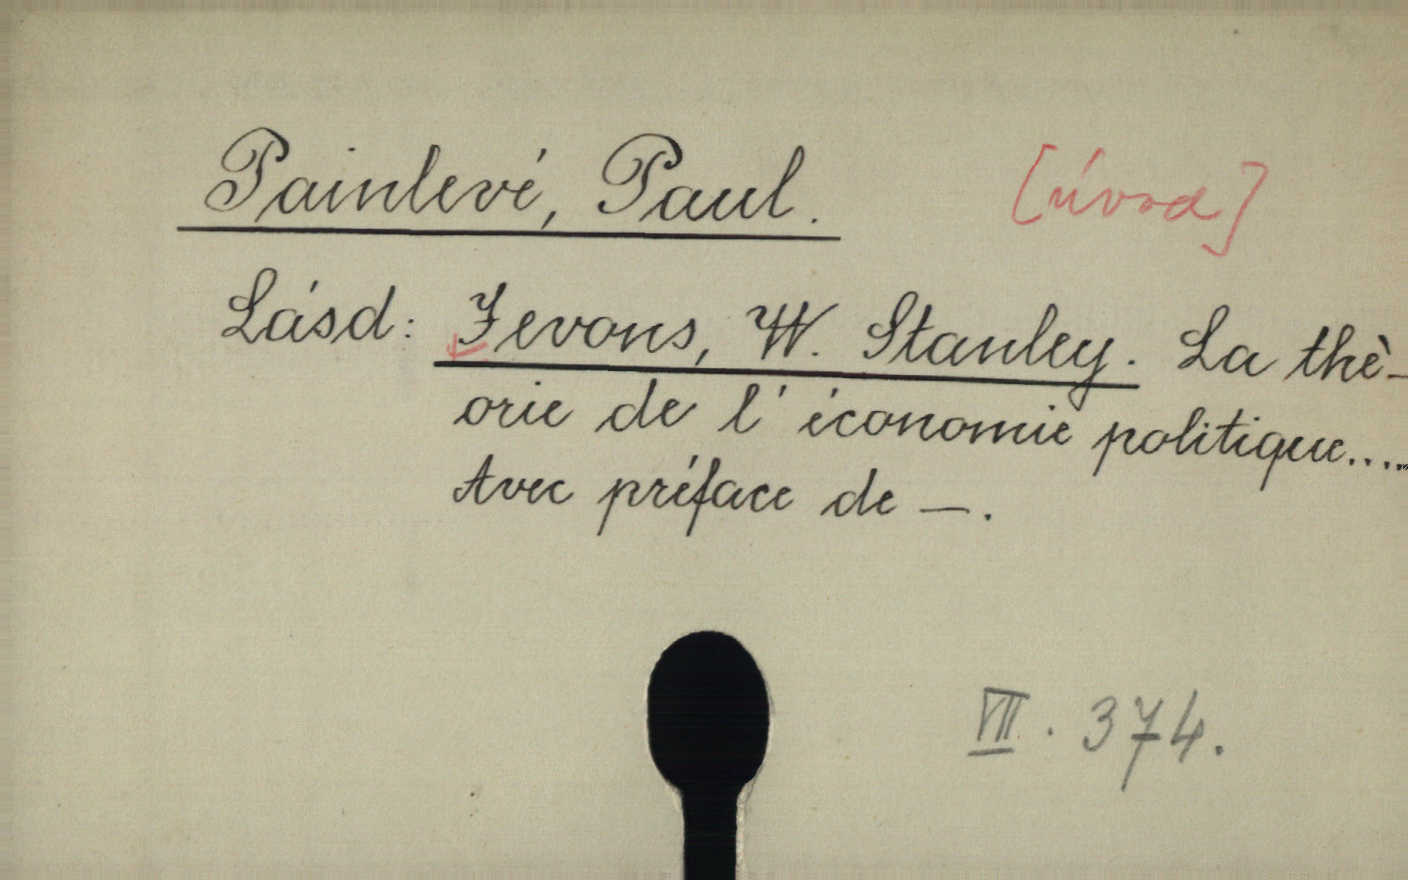 Painlevé, Paul. [úvod]
Lásd: Jevons, W. Stanley. La thè-
orie de l'économie politique....
Avec préface de —.
VII. 374.